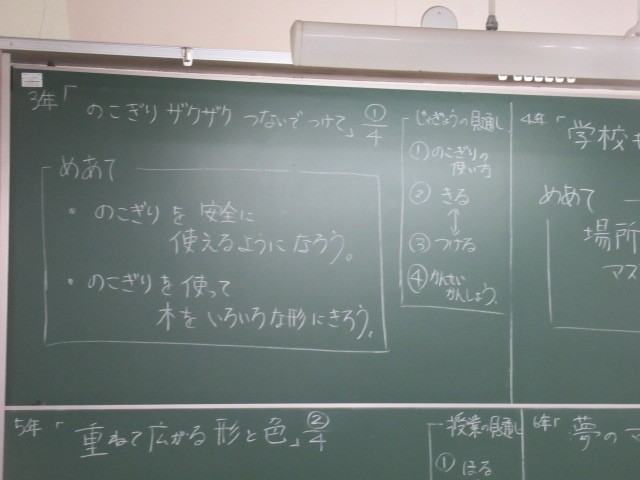 3年「のこぎり ザクザク つないで つけて」 ①/4
めあて
・のこぎりを 安全に
使えるように なろう。
・のこぎりを 使って
木を いろいろな形に きろう。
じゅぎょうの見通し
①のこぎりの
使い方
② きる
↕
③ つける
④ かんせい
かんしょう。
4年「学校
めあて
場所
マス
5年「重ねて広がる 形と色」 ②/4
授業の見通し
① ほる
6年「夢の マ